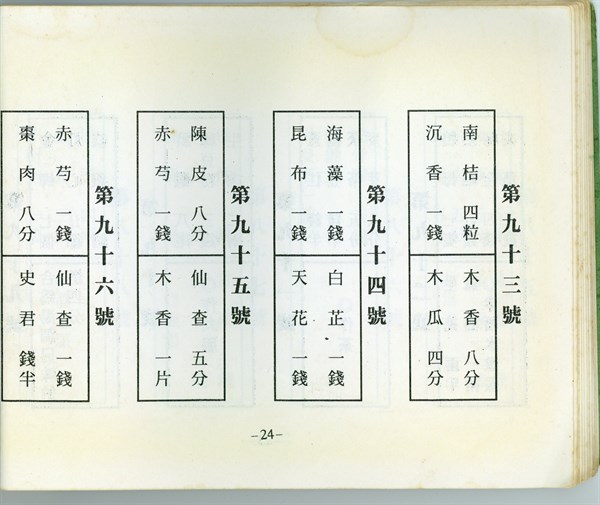 第九十三號
南桔 四粒 木香 八分
沉香 一錢 木瓜 四分
第九十四號
海藻 一錢 白芷 一錢
昆布 一錢 天花 一錢
第九十五號
陳皮 八分 仙查 五分
赤芍 一錢 木香 一片
第九十六號
赤芍 一錢 仙查 一錢
棗肉 八分 史君 錢半
-24-